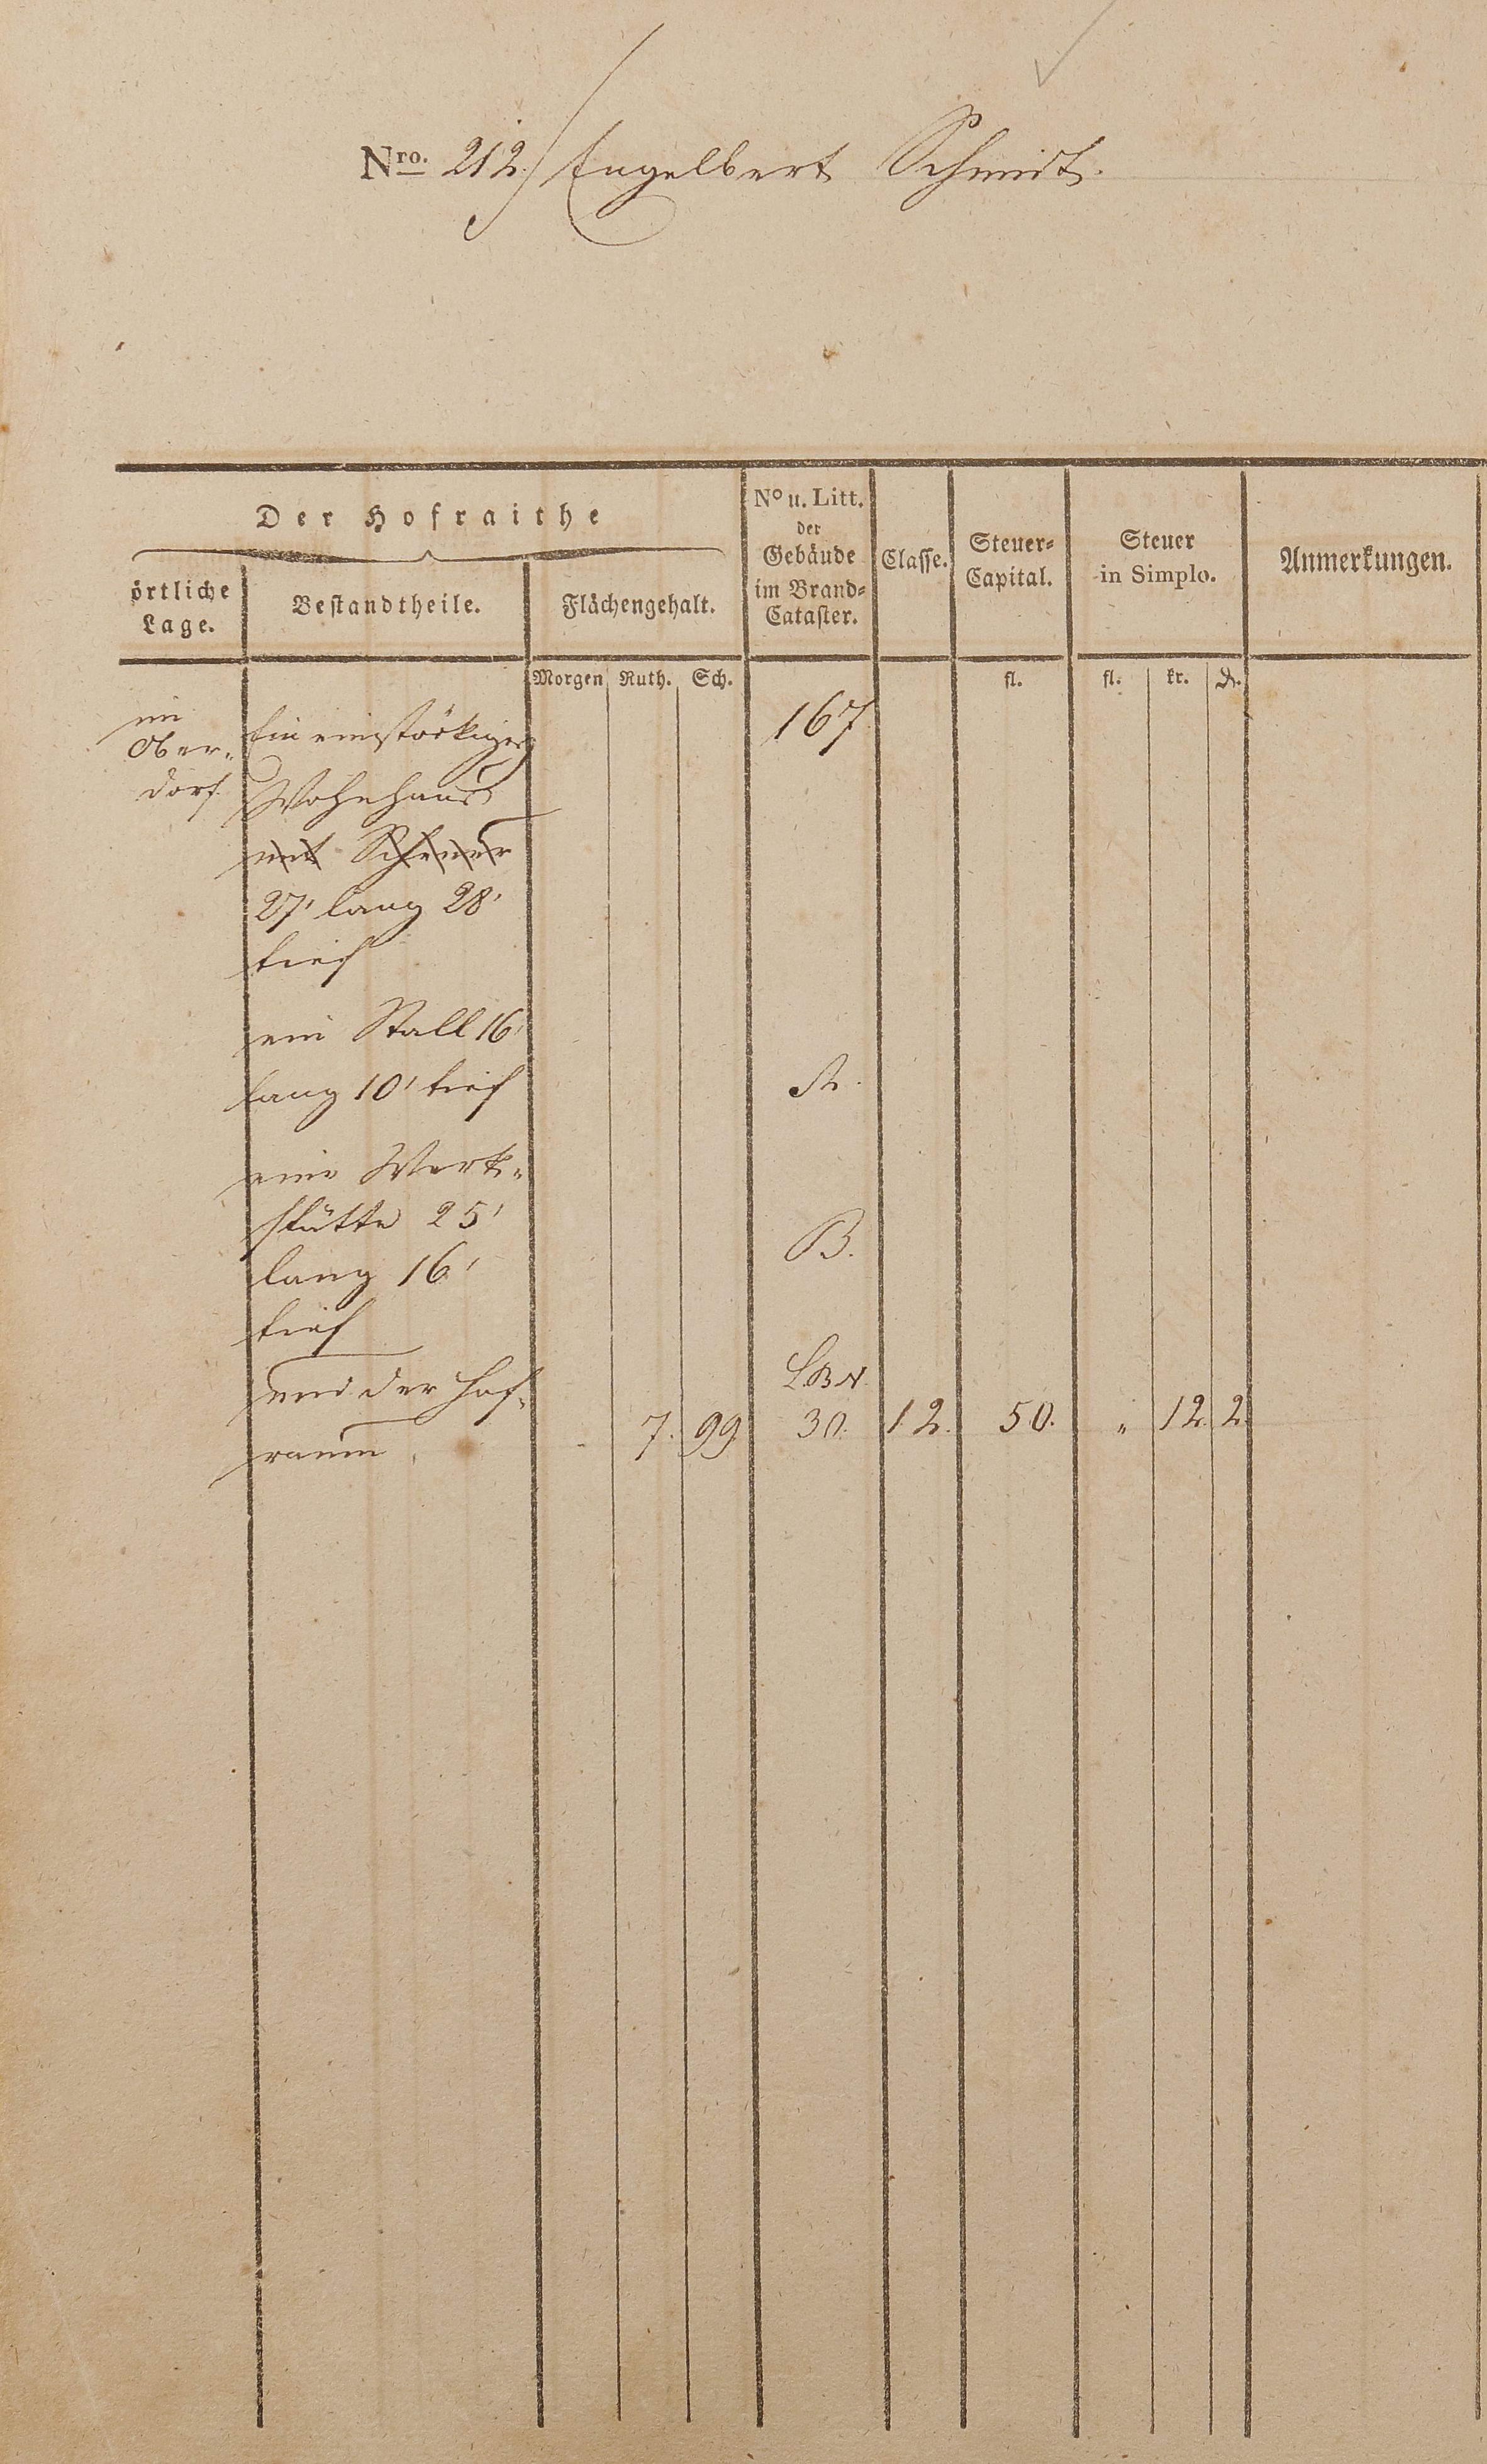 Nro. 212. Engelbert Schmidt.
Der Hofraithe
örtliche Lage.
Bestandtheile.
Flächengehalt.
No u. Litt. der Gebäude im Brand-Cataster.
Classe.
Steuer-Capital.
Steuer in Simplo.
Anmerkungen.
Morgen Ruth. Sch. fl. fl. kr. ₰.
im
Ober-
dorf.
Ein einstöckiges 167
Wohnhaus
mit Scheuer
27' lang 28'
tief
ein Stall 16'
lang 10' tief A.
eine Werk-
stätte 25'
lang 16' B.
tief
und der Hof- LBN.
raum 7. 99. 30. 12. 50. " 12. 2.